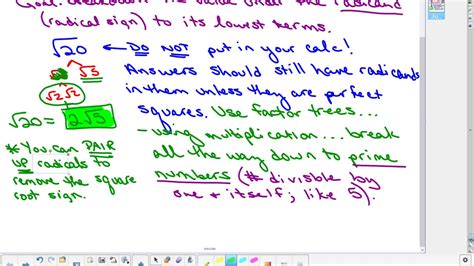 Goal: Breakdown the value under the radicand
(radical sign) to its lowest terms.
√20 ← DO NOT put in your calc!
√5
√2 √2
Answers should still have radicands
in them unless they are perfect
squares. Use factor trees...
- using multiplication... break
all the way down to prime
numbers (# divisible by
one + itself; like 5).
√20 = 2√5
* You can PAIR
UP radicals to
remove the square
root sign.